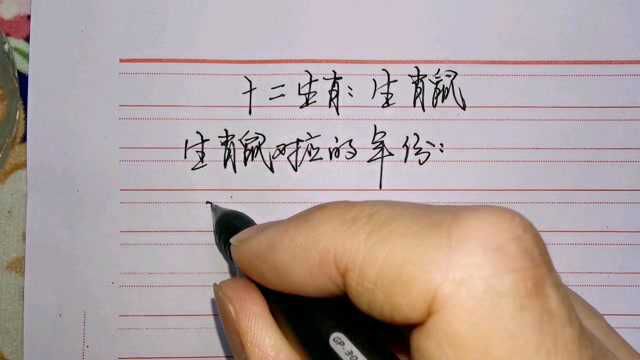 十二生肖：生肖鼠
生肖鼠对应的年份：
GP-30